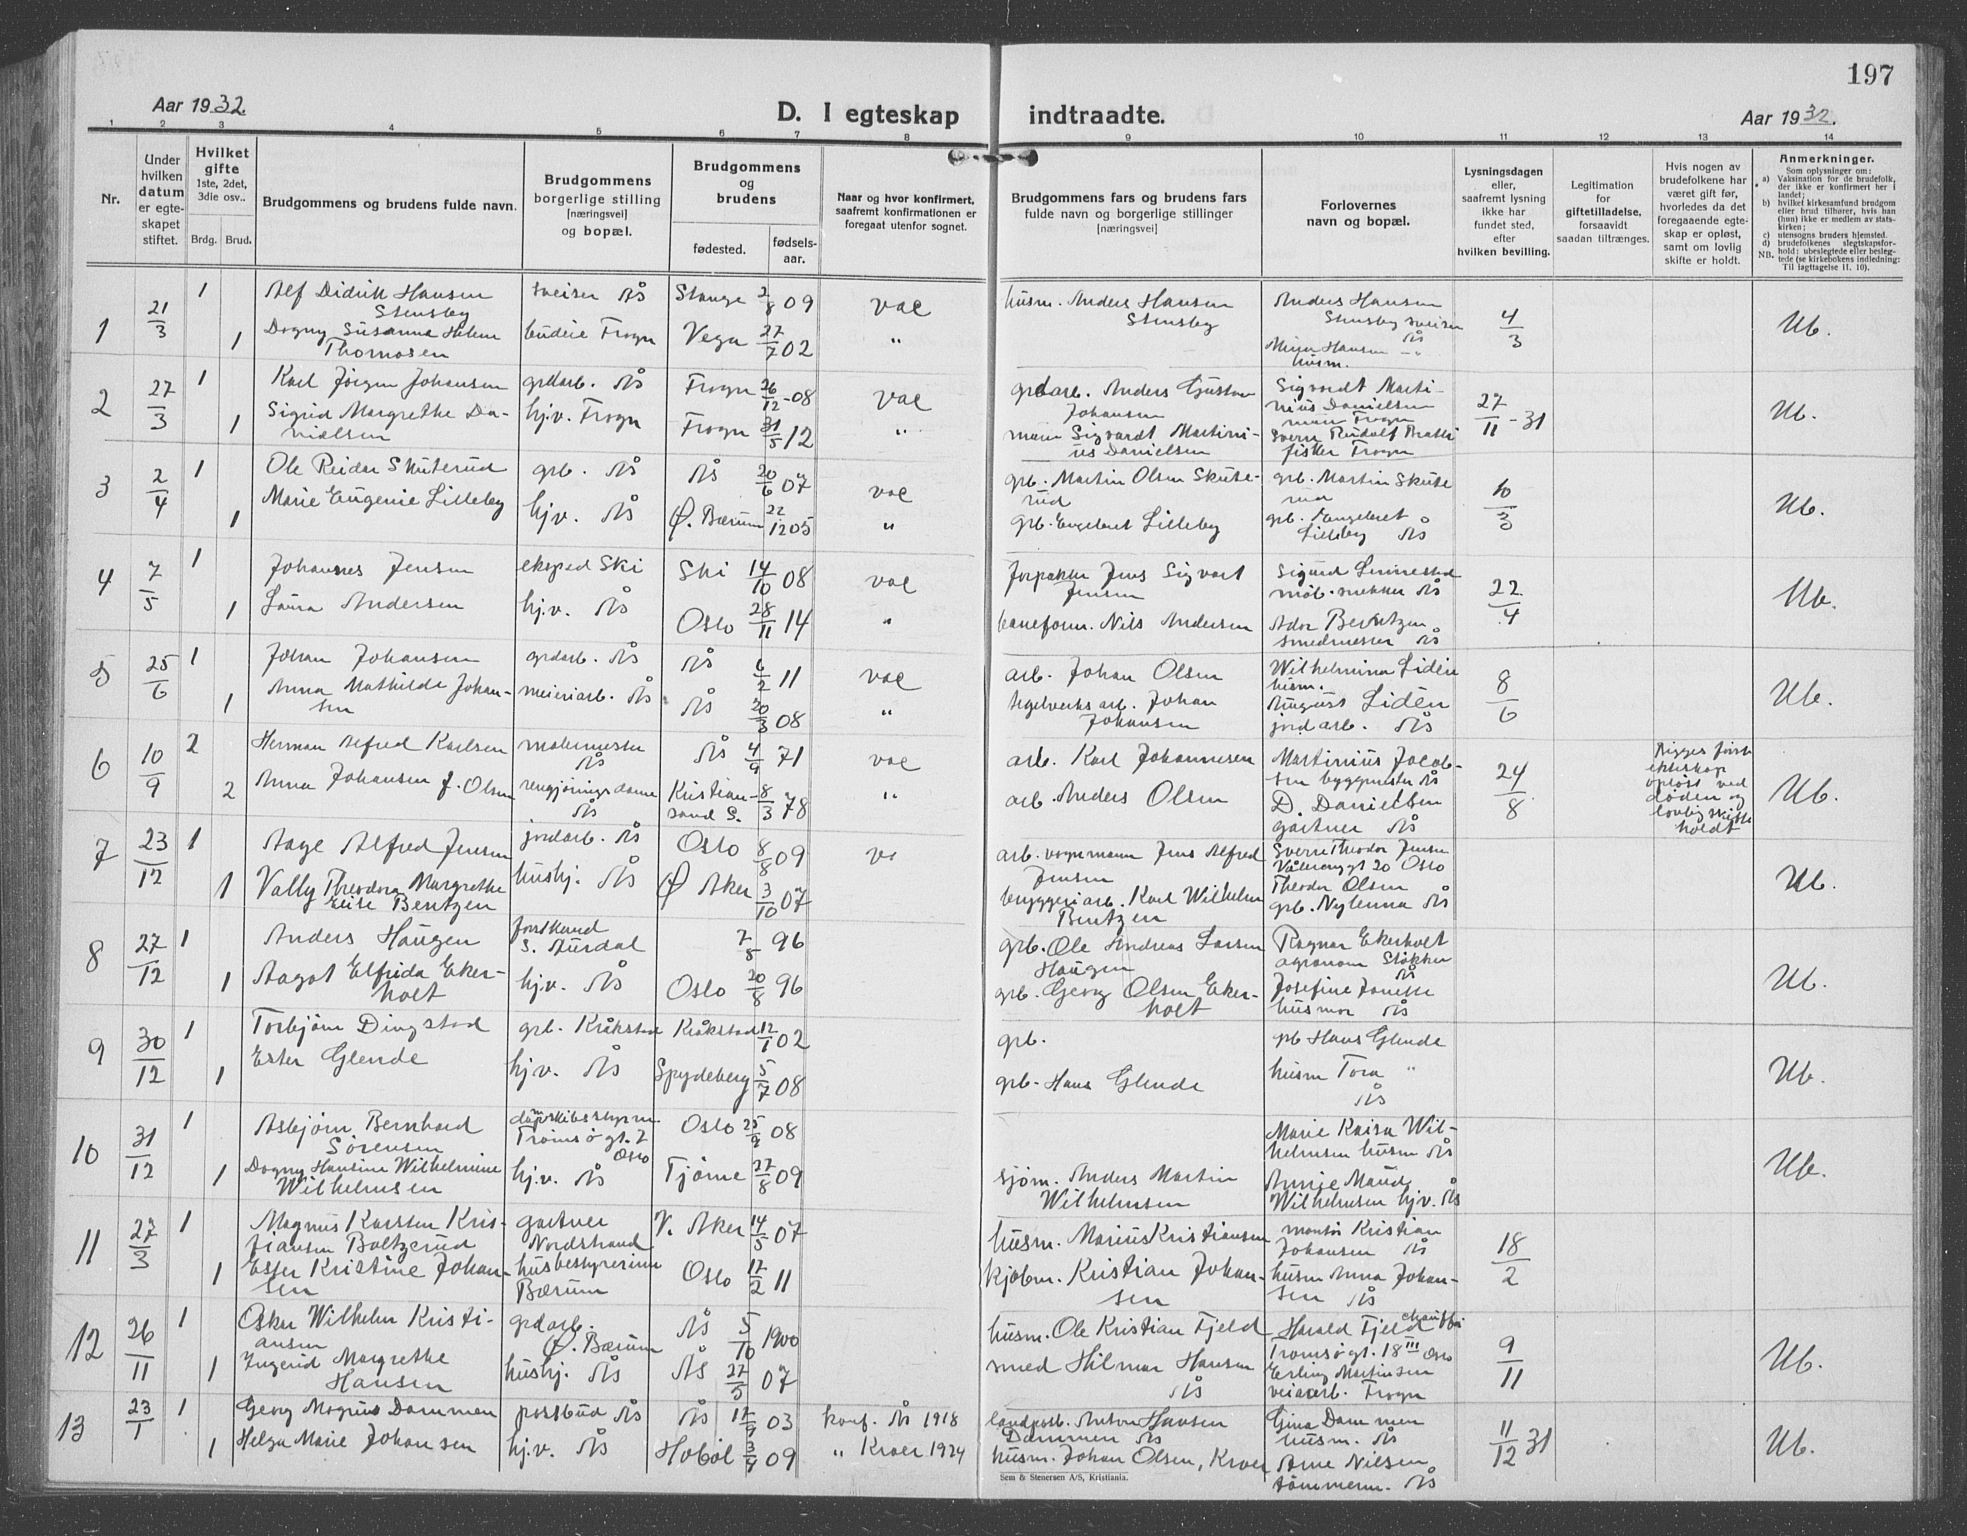 197
Aar 1932.
D. I egteskap indtraadte.
Aar 1932.
1 2 3 4 5 6 7 8 9 10 11 12 13 14
Nr.
Under hvilken datum er egteskapet stiftet.
Hvilket gifte 1ste, 2det, 3die osv..
Brdg. Brud.
Brudgommens og brudens fulde navn.
Brudgommens borgerlige stilling [næringsvei] og bopæl.
Brudgommens og brudens
fødested. fødselsaar.
Naar og hvor konfirmert, saafremt konfirmationen er foregaat utenfor sognet.
Brudgommens fars og brudens fars fulde navn og borgerlige stillinger [næringsvei]
Forlovernes navn og bopæl.
Lysningsdagen eller, saafremt lysning ikke har fundet sted, efter hvilken bevilling.
Legitimation for giftetilladelse, forsaavidt saadan tiltrænges.
Hvis nogen av brudefolkene har været gift før, hvorledes da det foregaaende egteskap er opløst, samt om lovlig skifte er holdt.
Anmerkninger.
Som oplysninger om:
a) Vaksination for de brudefolk, der ikke er konfirmert her i landet;
b) hvilket kirkesamfund brudgom eller brud tilhører, hvis han (hun) ikke er medlem av statskirken;
c) utensogns bruders hjemsted.
d) brudefolkenes slegtskapsforhold: ubeslegtede eller beslegtede (se kirkebokens indledning:
NB. Til Iagttagelse II. 10).
1 21/3 1 Alf Didrik Hansen Stensby sveiser Ås Stange 2/8 09 vac husm. Anders Hansen Stensby Anders Hansen Stensby sveiser Ås 4/3 Ub.
1 Dagny Susanna Helene Thomasen budeie Frogn Vega 27/7 02 " Hansen husm.
2 27/3 1 Karl Jörgen Johansen grdarb. Ås Frogn 26/12-08 vac grdarb. Anders Gustav Johansen Sigvardt Martinius Danielsen Frogn 27/11-31 Ub.
1 Sigrid Margrethe Danielsen hj.v. Frogn Frogn 31/5 12 " Sigvardt Martinius Danielsen Sverre Rudolf fisker Frogn
3 2/4 1 Ole Reidar Skuterud grb. Ås Ås 20/6 07 vac grb. Martin Olsen Skuterud grb. Martin Skuterud 10/3 Ub.
1 Marie Eugenie Lilleby hj.v. Ås Ø. Bærum 22/12 05 " grb. Engebret Lilleby grb. Engebret Lilleby Ås
4 7/5 1 Johannes Jensen eksped Ski Ski 14/10 08 vac forpakter Jens Sigvart Jensen Sigurd møb.snekker Ås 22/4 Ub.
1 Laura Andersen hj.v. Ås Oslo 28/11 14 " baneform. Nils Andersen Ador Berntzen smedmester Ås
5 25/6 1 Johan Johansen grdarb. Ås Ås 6/2 11 vac arb. Johan Olsen Wilhelmina Lidén husm. 8/6 Ub.
1 Anna Mathilde Johansen meieriarb. Ås Ås 20/3 08 " teglverks arb. Johan Johansen August Lidén jordarb. Ås
6 10/9 2 Herman Alfred Karlsen malermester Ås Ås 4/9 71 vac arb. Karl Johannesen Martinius Jacobsen byggmester Ås 24/8 Begges første ekteskap opløst ved døden og lovlig skifte holdt Ub.
2 Anna Johansen f. Olsen rengjøringsdame Ås Kristiansand S. 8/3 78 " arb. Anders Olsen D. Danielsen gartner Ås
7 23/12 1 Aage Alfred Jensen jordarb. Ås Oslo 8/8 09 va arb. vognmann Jens Alfred Jensen Sverre Theodor Jensen Vålerenggt 20 Oslo Ub.
1 Vally Theodora Margrethe Elise Bentzen hushj. Ås Ø Aker 3/10 07 bryggeriarb. Karl Wilhelm Bentzen Theodor Olsen grb. Nylenna Ås
8 27/12 1 Anders Haugen forstkand S. Aurdal 7/8 96 grb. Ole Andreas Larsen Haugen Ragnar Ekerholt agronom Stokker Ås Ub.
1 Aagot Elfrida Ekerholt hj.v. Ås Oslo 20/8 96 grb. Georg Olsen Ekerholt Josefine husmor Ås
9 30/12 1 Torbjörn Dingstad grb. Kråkstad Kråkstad 12/1 02 grb. grb Hans Glende Ub.
1 Ester Glende hj.v. Ås Spydeberg 5/7 08 grb. Hans Glende husm Tora " Ås
10 31/12 1 Asbjörn Bernhard Sörensen dampskibsstyrm. Tromsøgt. 2 Oslo Oslo 25/9 08 Marie Kaisa Wilhelmsen husm Ås Ub.
1 Dagny Hansine Wilhelmine Wilhelmsen hj.v. Ås Tjöme 27/8 09 sjöm. Anders Martin Wilhelmsen Annie Maud Wilhelmsen hj.v. Ås
11 27/3 1 Magnus Karsten Kristiansen Boltzerud gartner Nordstrand V. Aker 14/5 07 husm. Marius Kristiansen montör Kristian Johansen Ås 18/2
1 Ester Kristine Johansen husbestyrerinne Bærum Oslo 17/2 11 kjøbm. Kristian Johansen husm Anna Johansen Ås
12 26/11 1 Oskar Wilhelm Kristiansen grdarb. Ø. Bærum Ås 5/10 1900 husm. Ole Kristian Fjeld Harald Fjeld Tromsøgt. 18 III Oslo 9/11 Ub.
1 Ingerid Margrethe Hansen hushj. Ås Ås 27/5 07 smed Hilmar Hansen Ås Erling Martinsen veiarb. Frogn
13 23/1 1 Georg Magnus Dammen postbud Ås Ås 17/9 03 konf. Ås 1918 landpostb. Anton Hansen Dammen Ås Gina Dammen husm. Ås 11/12 31 Ub.
1 Helga Marie Johansen hj.v. Ås Hobøl 3/7 09 " Kroer 1924 husm. Johan Olsen, Kroer Arne Nilsen tömmerm. Ås
Sem & Stenersen A/S, Kristiania.